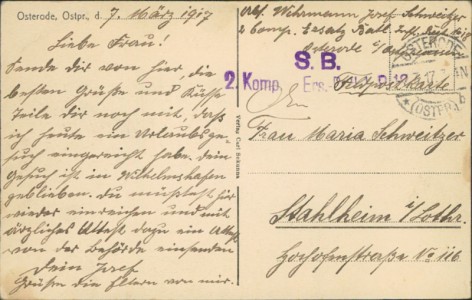 Osterode, Ostpr., d. 7. März 1917
Liebe Frau!
Sende dir von hier, die
besten Grüße und Küsse
teile dir noch mit, dass
ich heute ein Urlaubsge-
such eingereicht habe. dein
Gesuch ist in Wilhelmshafen
geblieben. du musst
wieder einreichen und mit
ärzliches Attest dazu ein Attest
von der Behörde einsenden
Dein Josef.
Grüße die Eltern von mir.
Abs. Wehrmann Josef Schweitzer
2 Komp. Ersatz Batl. Inft. Reg.
Osterode i/Ostpreussen
S.B.
2. Komp.
Feldpostkarte
OSTERODE
(OSTPR.)
Frau Maria Schweitzer
Stahlheim i/Lothr.
Hochofenstraße No 116